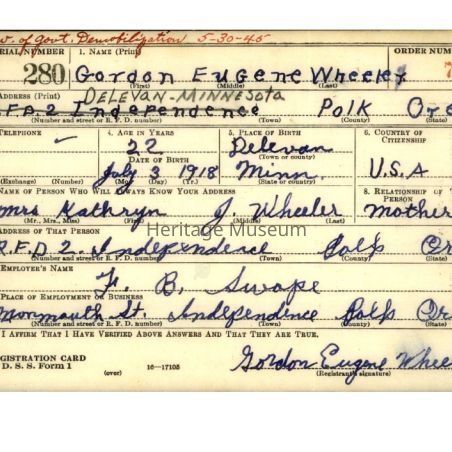 v. of Govt. Demobilization 5-30-45
ERIAL NUMBER 1. NAME (Print) ORDER NUM
280 Gordon Eugene Wheeler 7
(First) (Middle) (Last)
DELEVAN-MINNESOTA
ADDRESS (Print)
R.F.D. 2 Independence Polk Ore
(Number and street or R. F. D. number) (Town) (County) (State)
TELEPHONE 4. AGE IN YEARS 5. PLACE OF BIRTH 6. COUNTRY OF CITIZENSHIP
22 Delevan
DATE OF BIRTH (Town or county)
July 3 1918 Minn. U.S.A
(Exchange) (Number) (Mo.) (Day) (Yr.) (State or country)
NAME OF PERSON WHO WILL ALWAYS KNOW YOUR ADDRESS 8. RELATIONSHIP OF THAT PERSON
Mrs Kathryn J. Wheeler Mother
(Mr., Mrs., Miss) (First) (Middle) (Last)
Heritage Museum
ADDRESS OF THAT PERSON
R.F.D 2. Independence Polk Or
(Number and street or R. F. D. number) (Town) (County) (State)
EMPLOYER'S NAME
F. B. Swope
PLACE OF EMPLOYMENT OR BUSINESS
Monmouth St. Independence Polk Or
(Number and street or R. F. D. number) (Town) (County) (State)
I AFFIRM THAT I HAVE VERIFIED ABOVE ANSWERS AND THAT THEY ARE TRUE.
REGISTRATION CARD
D. S. S. Form 1 (over) 16—17105
Gordon Eugene Wheel
(Registrant's signature)